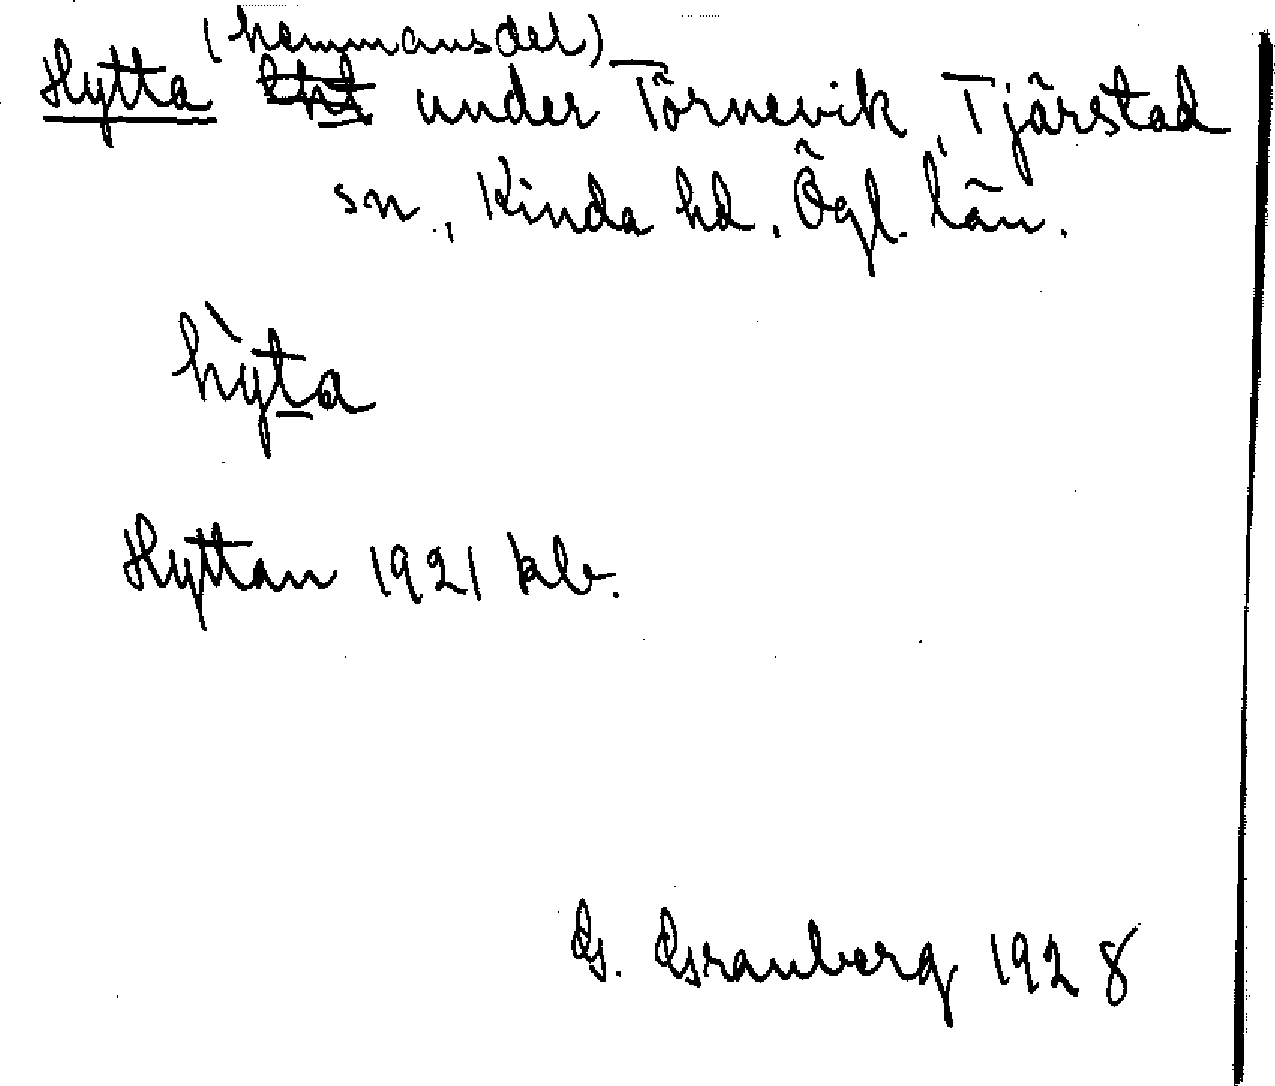 (hemmansdel)
Hytta under Törnevik, Tjärstad
sn., Kinda hd, Ögl. län.
hy̆̀ta
Hyttan 1921 kb.
G. Granberg 1928